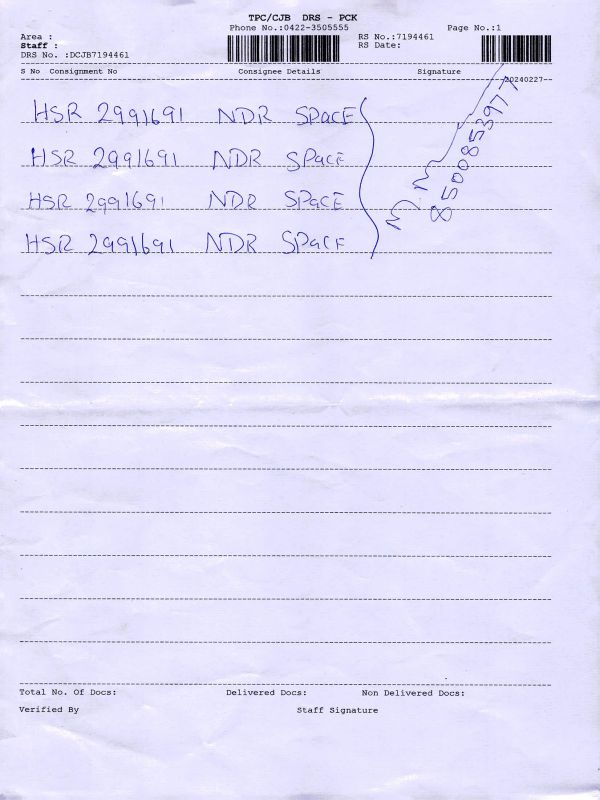 TPC/CJB DRS - PCK
Phone No.:0422-3505555 Page No.:1
Area : RS No.:7194461
Staff : RS Date:
DRS No. :DCJB7194461
S No Consignment No Consignee Details Signature
20240227
HSR 2991691 NDR SPACE
HSR 2991691 NDR SPACE
HSR 2991691 NDR SPACE
HSR 2991691 NDR SPACE
8500853977
Total No. Of Docs: Delivered Docs: Non Delivered Docs:
Verified By Staff Signature